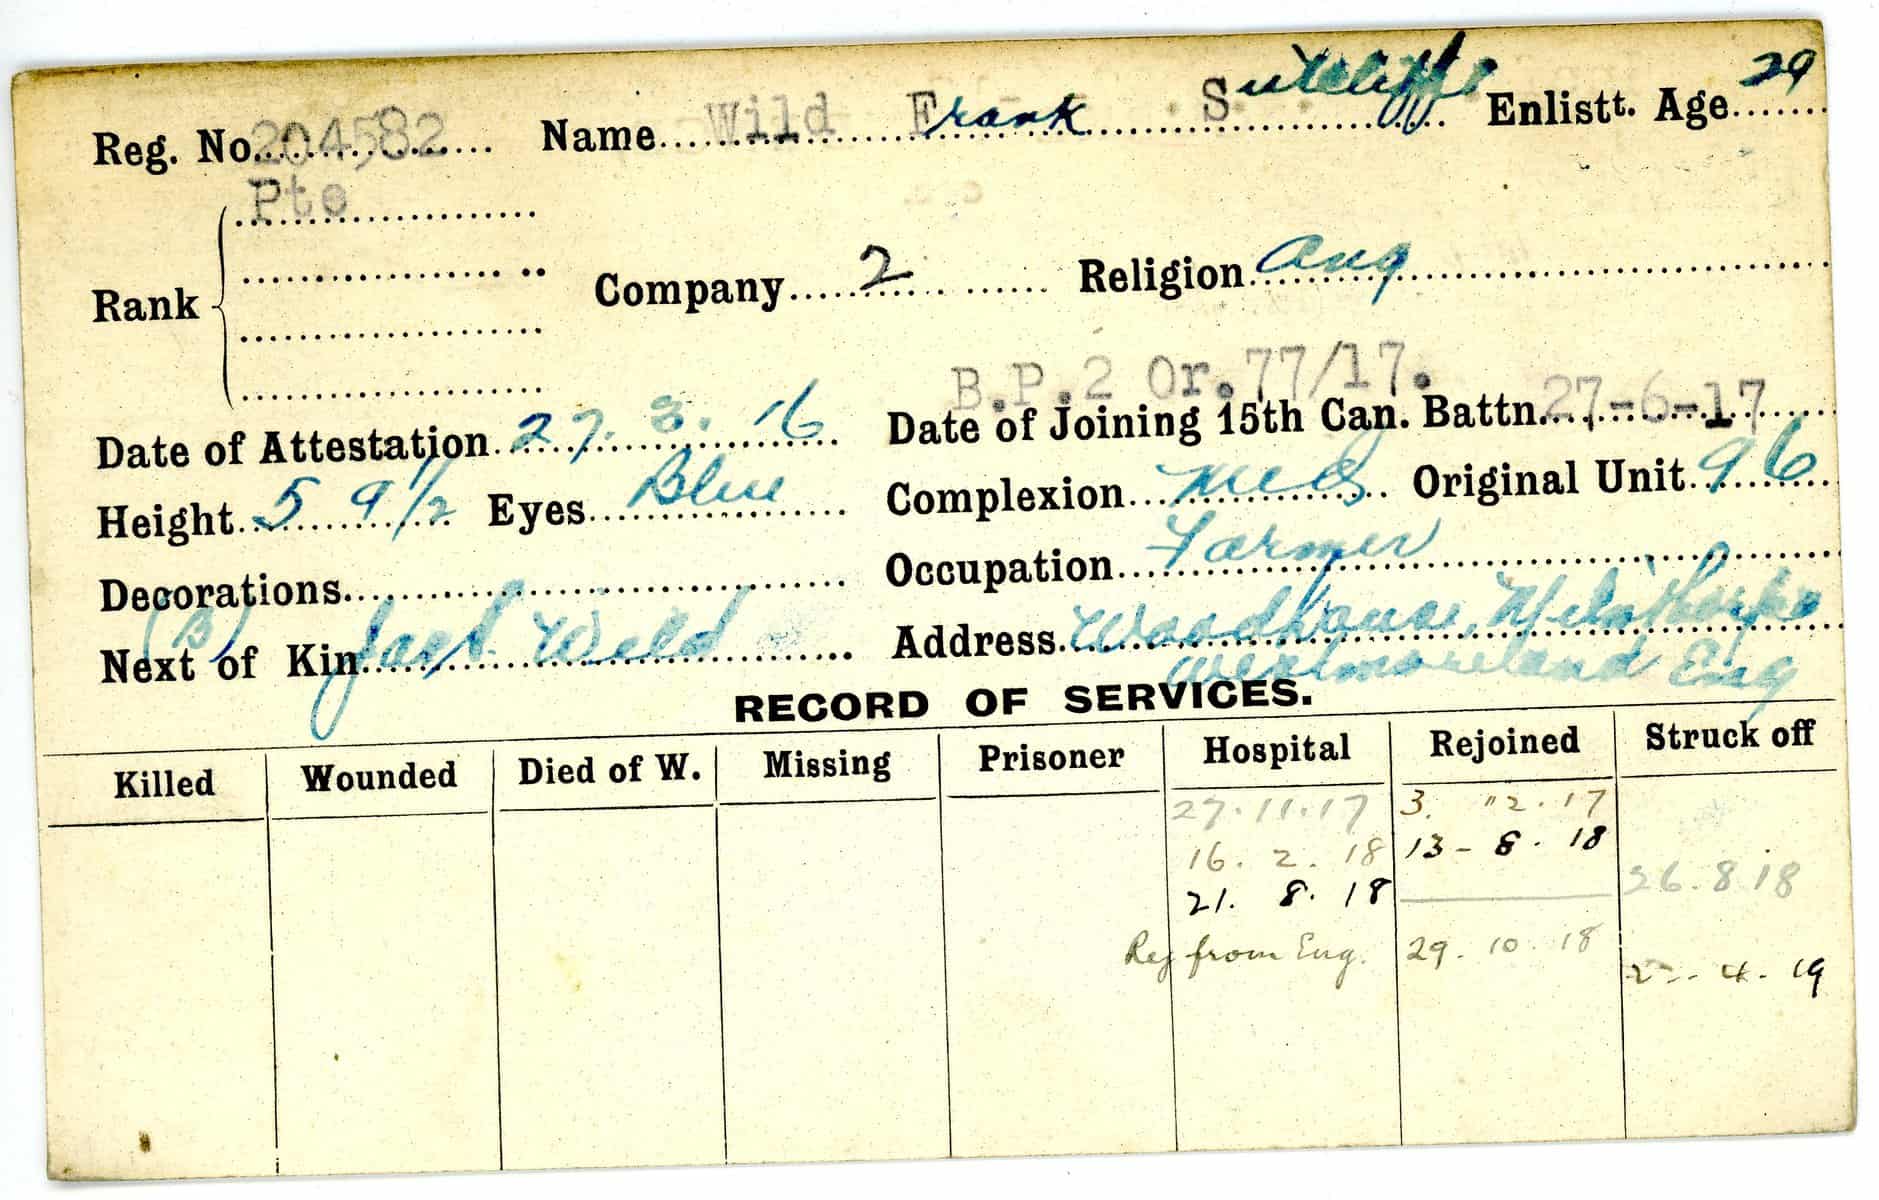 Reg. No. 204582 Name Wild Frank Sutcliffe Enlistt. Age 29
Pte
Rank Company 2 Religion Ang
B.P.2 Or.77/17.
Date of Attestation 27. 3. 16 Date of Joining 15th Can. Battn. 27-6-17
Height 5 9 1/2 Eyes Blue Complexion Med Original Unit 96
Decorations Occupation Farmer
(B)
Next of Kin Wild Address Woodhouse, Milnthorpe
Westmoreland Eng
RECORD OF SERVICES.
Killed Wounded Died of W. Missing Prisoner Hospital Rejoined Struck off
27.11.17 3. "2.17
16. 2. 18 13-8. 18
21. 8. 18 26.8.18
Rej from Eng. 29. 10. 18
4. 19